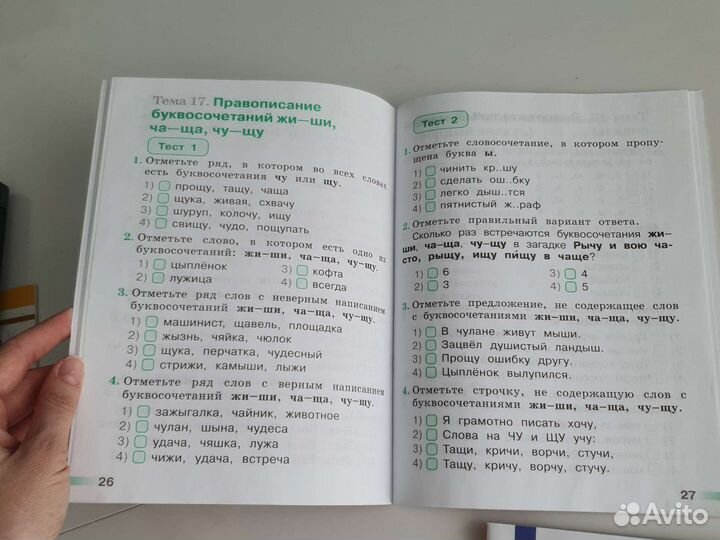 Тема 17. Правописание
буквосочетаний жи—ши,
ча—ща, чу—щу
Тест 1
1. Отметьте ряд, в котором во всех словах
есть буквосочетания чу или щу.
1) прощу, тащу, чаща
2) щука, живая, схвачу
3) шуруп, колочу, ищу
4) свищу, чудо, пощупать
2. Отметьте слово, в котором есть одно из
буквосочетаний: жи—ши, ча—ща, чу—щу.
1) цыплёнок 3) кофта
2) лужица 4) всегда
3. Отметьте ряд слов с неверным написанием
буквосочетаний жи—ши, ча—ща, чу—щу.
1) машинист, щавель, площадка
2) жызнь, чяйка, чюлок
3) щука, перчатка, чудесный
4) стрижи, камыши, лыжи
4. Отметьте ряд слов с верным написанием
буквосочетаний жи—ши, ча—ща, чу—щу.
1) зажыгалка, чайник, животное
2) чулан, шына, чудеса
3) удача, чяшка, лужа
4) чижи, удача, встреча
26
Тест 2
1. Отметьте словосочетание, в котором пропу-
щена буква ы.
1) чинить кр..шу
2) сделать ош..бку
3) легко дыш..тся
4) пятнистый ж..раф
2. Отметьте правильный вариант ответа.
Сколько раз встречаются буквосочетания жи—
ши, ча—ща, чу—щу в загадке Рычу и вою ча-
сто, рыщу, ищу пищу в чаще?
1) 6 3) 4
2) 3 4) 5
3. Отметьте предложение, не содержащее слов
с буквосочетаниями жи—ши, ча—ща, чу—щу.
1) В чулане живут мыши.
2) Зацвёл душистый ландыш.
3) Прощу ошибку другу.
4) Цыплёнок вылупился.
4. Отметьте строчку, не содержащую слов с
буквосочетаниями жи—ши, ча—ща, чу—щу.
1) Я грамотно писать хочу,
2) Слова на ЧУ и ЩУ учу:
3) Тащи, кричи, ворчи, стучи,
4) Тащу, кричу, ворчу, стучу.
27
Avito